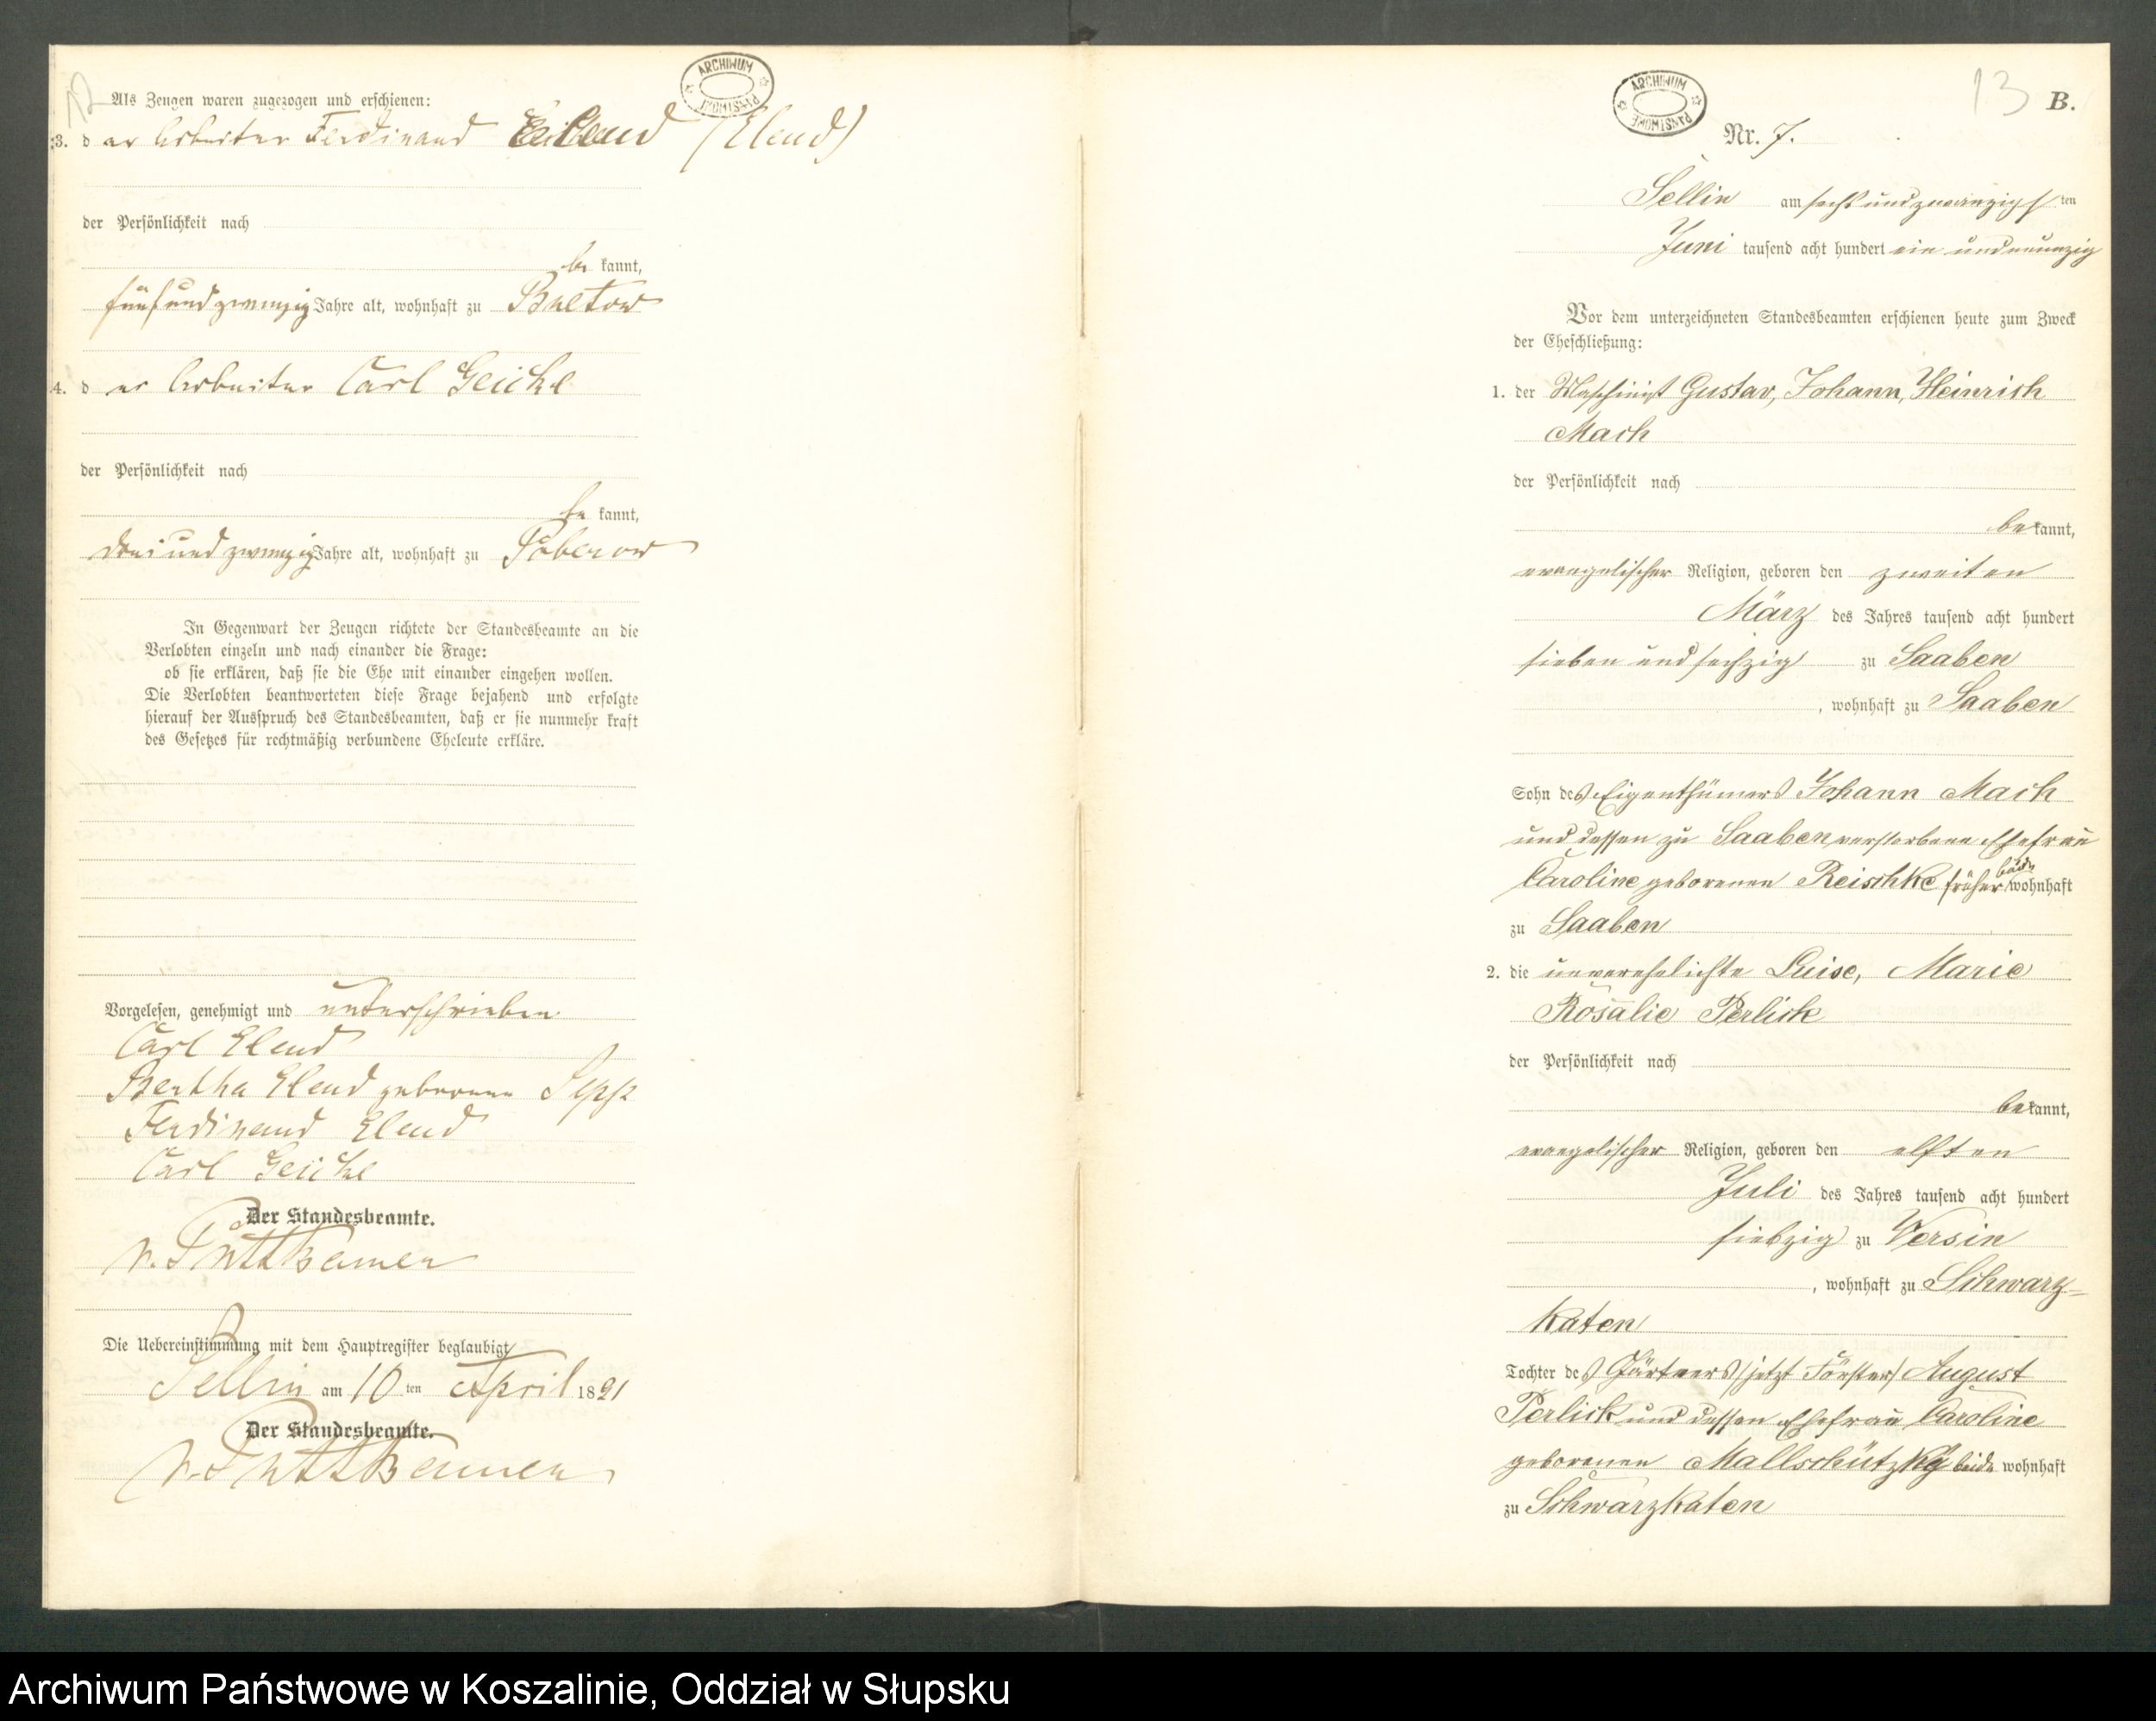 12
Als Zeugen waren zugezogen und erschienen:
3. der Arbeiter Ferdinand Elend (Elend)
der Persönlichkeit nach
be kannt,
fünf und zwanzig Jahre alt, wohnhaft zu Bütow
4. der Arbeiter Carl
der Persönlichkeit nach
be kannt,
drei und zwanzig Jahre alt, wohnhaft zu Poberow
In Gegenwart der Zeugen richtete der Standesbeamte an die
Verlobten einzeln und nach einander die Frage:
ob sie erklären, daß sie die Ehe mit einander eingehen wollen.
Die Verlobten beantworteten diese Frage bejahend und erfolgte
hierauf der Ausspruch des Standesbeamten, daß er sie nunmehr kraft
des Gesetzes für rechtmäßig verbundene Eheleute erkläre.
Vorgelesen, genehmigt und unterschrieben
Carl Elend
Bertha Elend geborene
Ferdinand Elend
Carl
Der Standesbeamte.
v. Puttkamer
Die Uebereinstimmung mit dem Hauptregister beglaubigt
Sellin am 10 ten April 1891
Der Standesbeamte.
v. Puttkamer
ARCHIWUM PAŃSTWOWE
ARCHIWUM PAŃSTWOWE
13
B.
Nr. 7.
Sellin am sechsundzwanzigsten
Juni tausend acht hundert ein und neunzig
Vor dem unterzeichneten Standesbeamten erschienen heute zum Zweck
der Eheschließung:
1. der Maschinist Gustav, Johann, Heinrich
Mach
der Persönlichkeit nach
be kannt,
evangelischer Religion, geboren den zweiten
März des Jahres tausend acht hundert
sieben und sechzig zu Saaben
, wohnhaft zu Saaben
Sohn des Eigenthümers Johann Mach
und dessen zu Saaben verstorbene Ehefrau
Caroline geborenen Reischke früher beide wohnhaft
zu Saaben
2. die unverehelichte Luise, Marie
Rosalie Perlick
der Persönlichkeit nach
be kannt,
evangelischer Religion, geboren den elften
Juli des Jahres tausend acht hundert
siebzig zu Versin
, wohnhaft zu Schwarz-
katen
Tochter des Gärtners (jetzt Förster) August
Perlick und dessen Ehefrau Caroline
geborenen Mallschützky beide wohnhaft
zu Schwarzkaten
Archiwum Państwowe w Koszalinie, Oddział w Słupsku